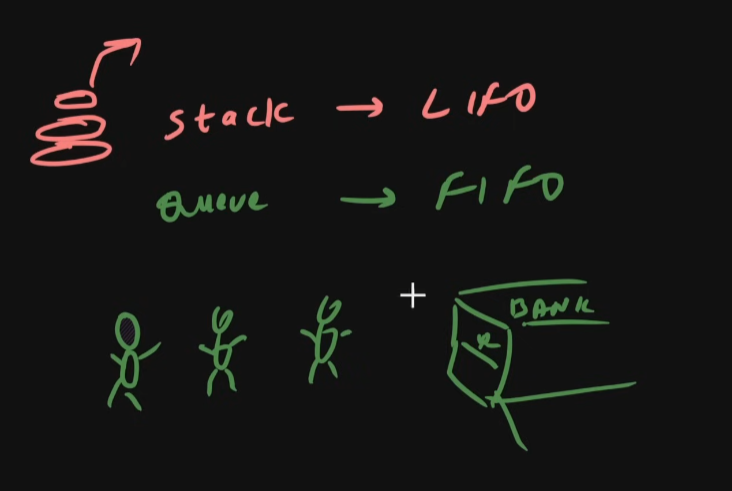 stack → LIFO
Queue → FIFO
BANK